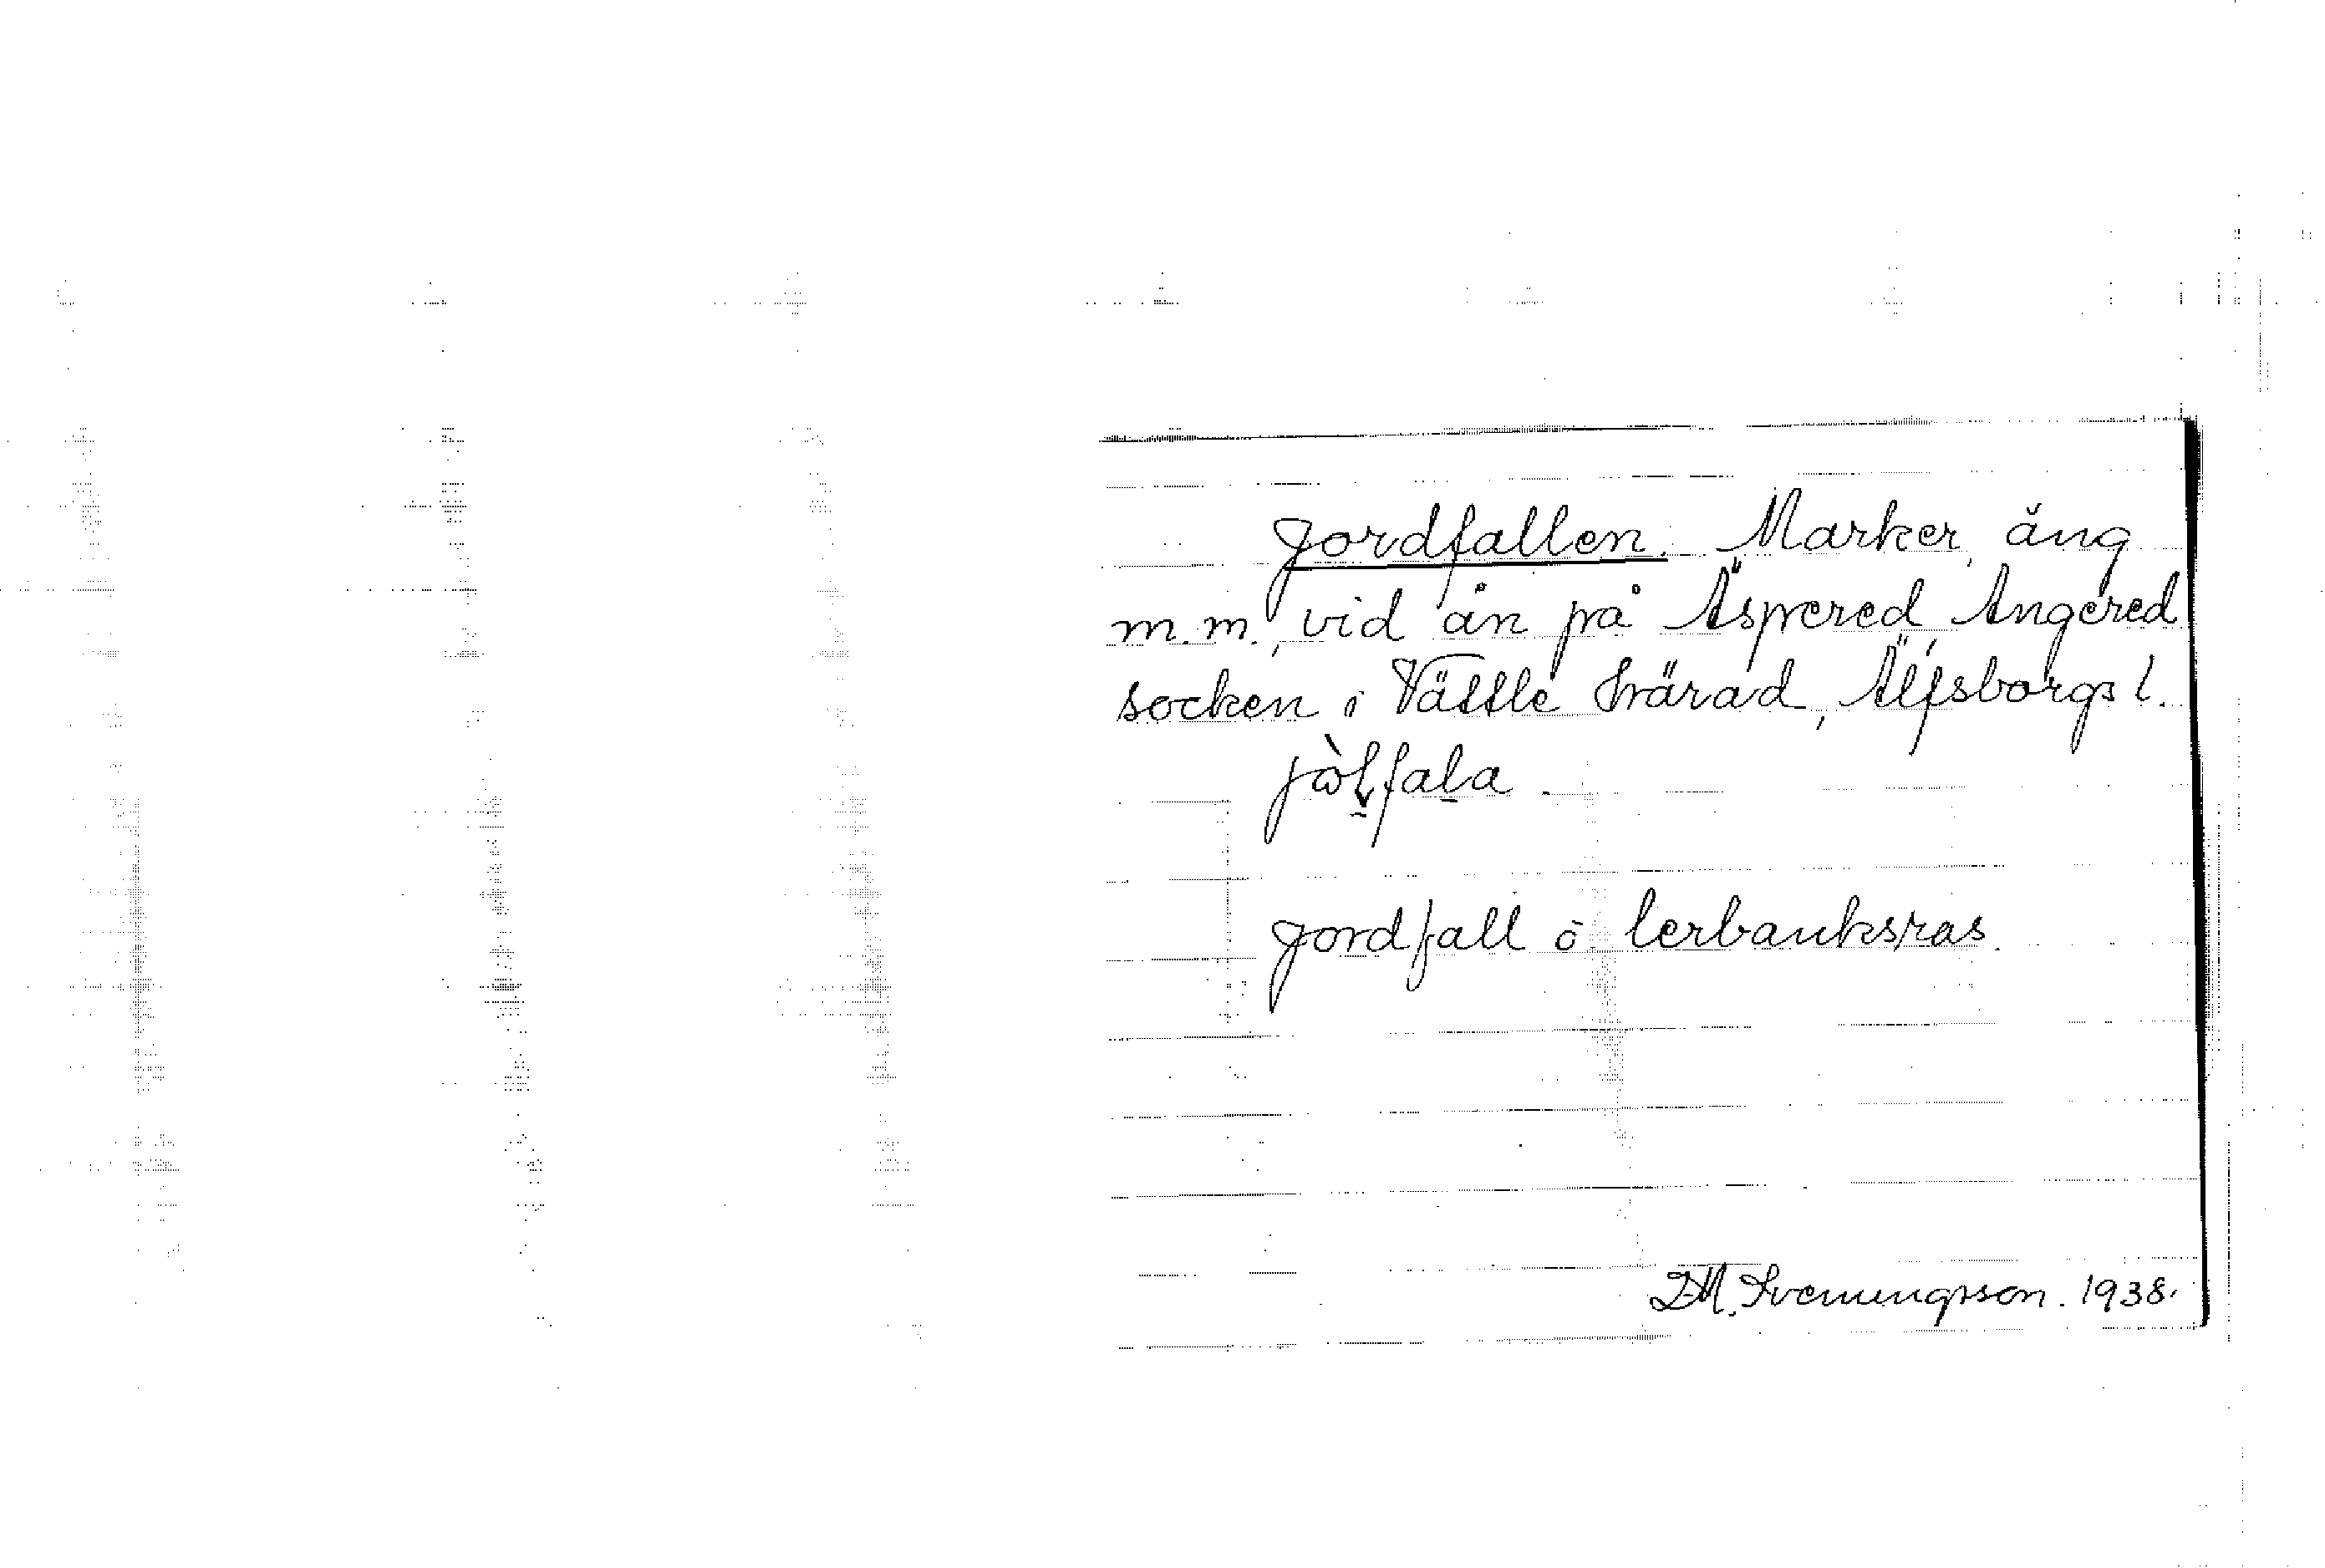 Jordfallen. Marker, äng
m.m., vid ån på Äspered Angered
socken i Vättle härad, Älfsborgs l.
jordfall o. lerbanksras.
Svenningsson. 1938.